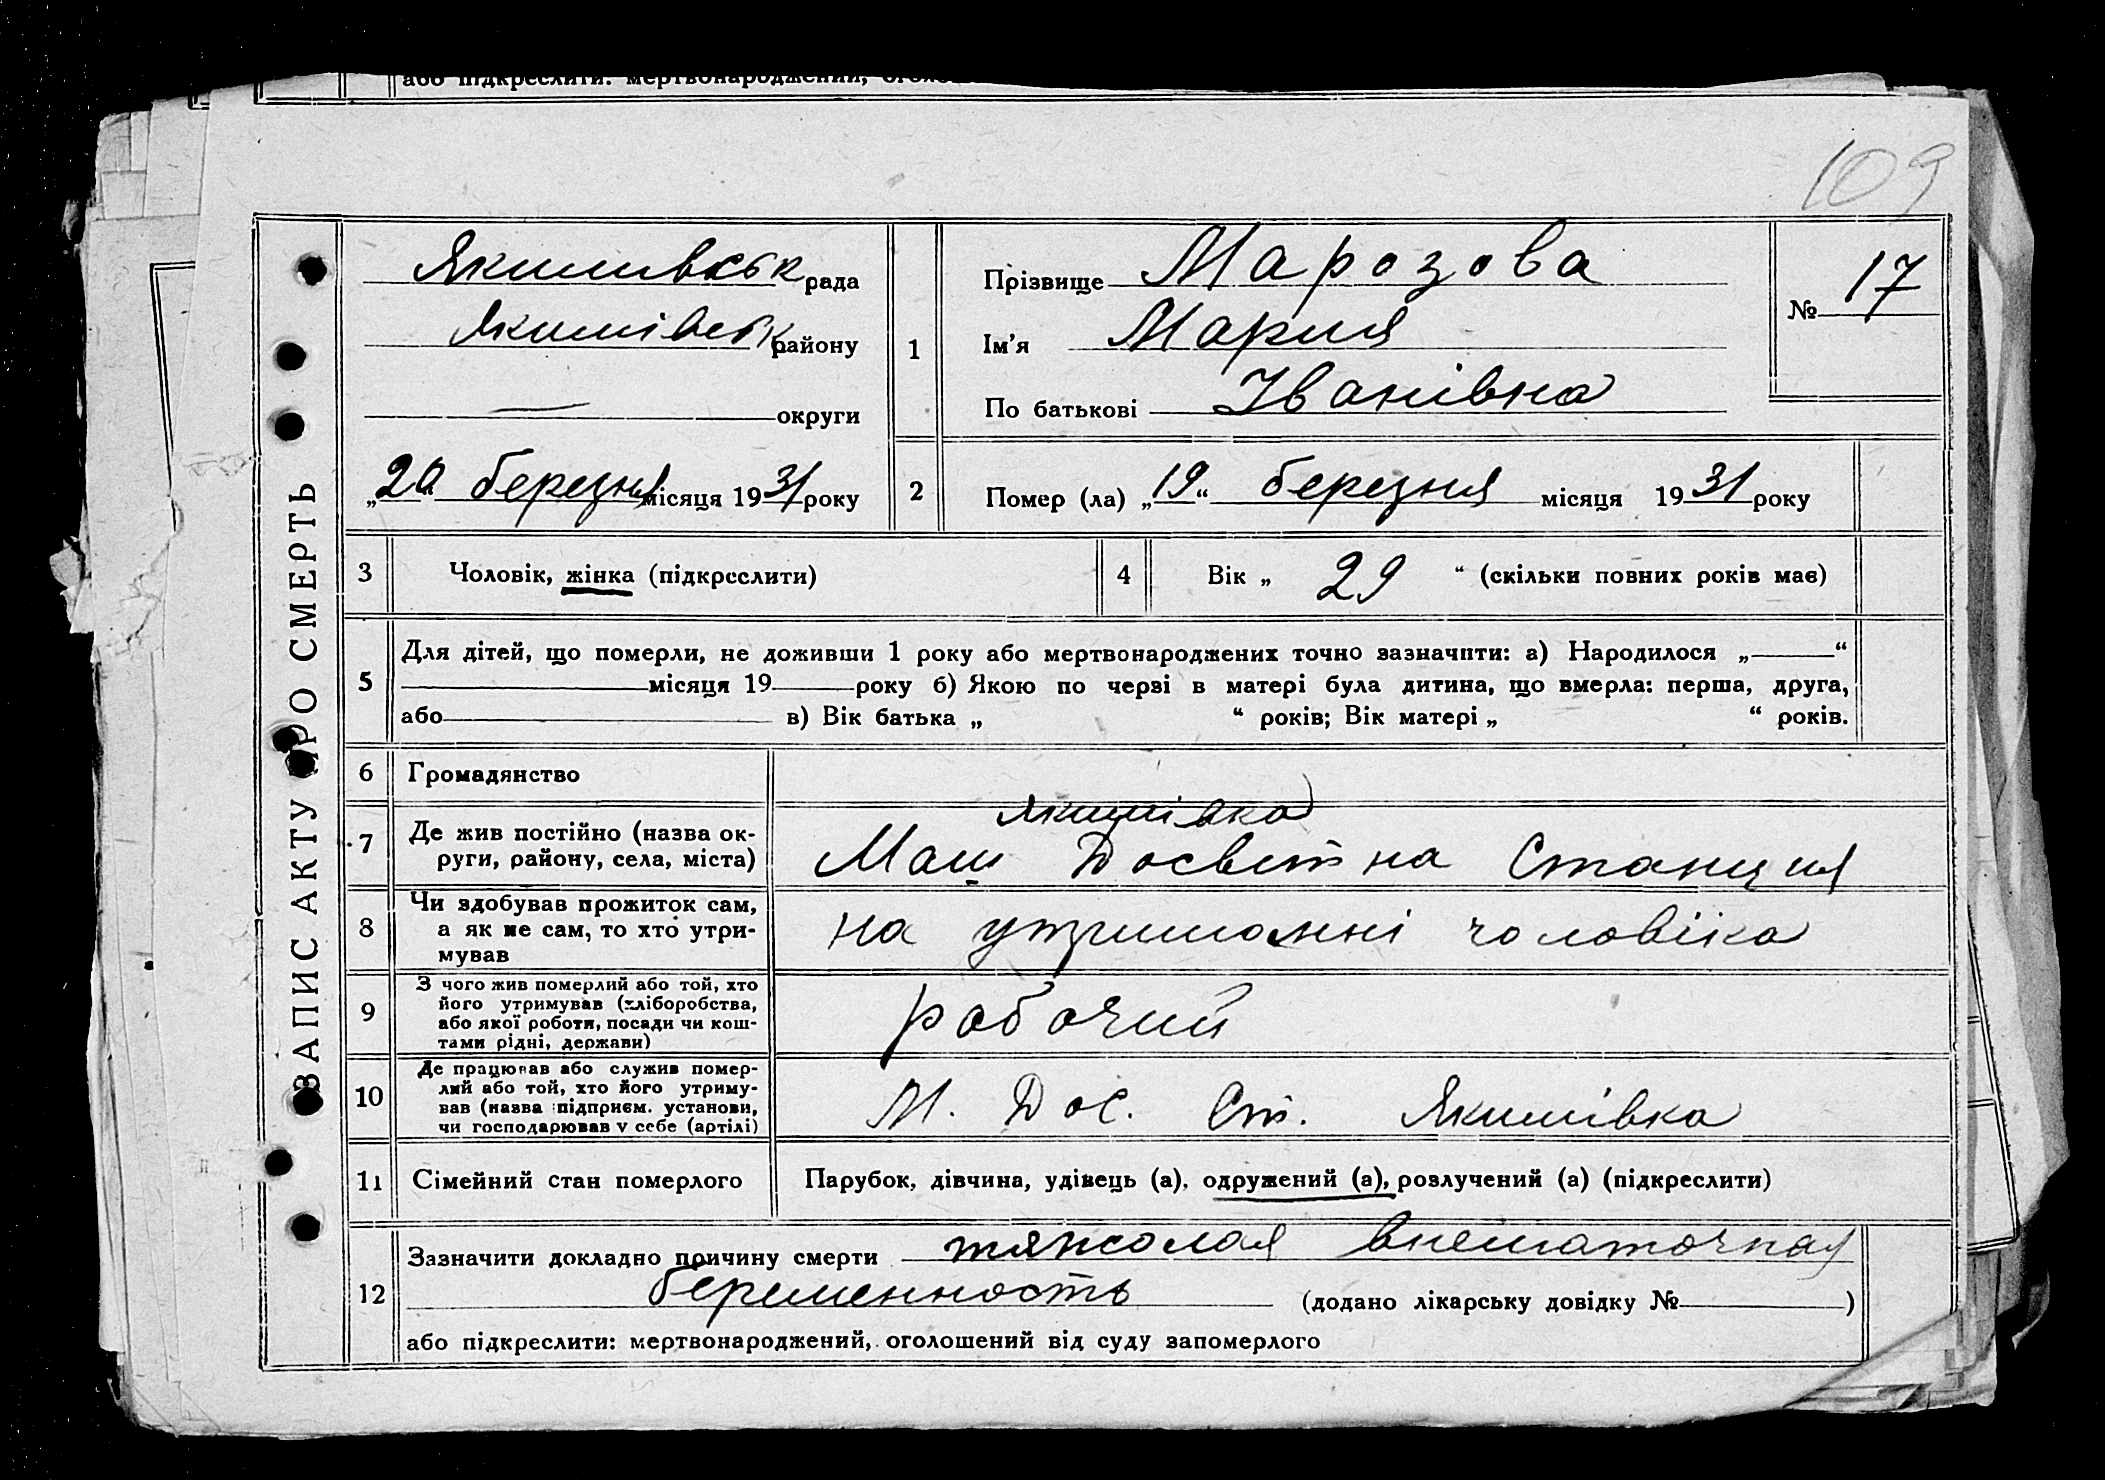 або підкреслити: мертвонароджений,
109
ЗАПИС АКТУ ПРО СМЕРТЬ
Якимивськ рада
Якимівськ району
— округи
„20“ березня місяця 1931 року
1
Прізвище Марозова
Ім'я Мария
По батькові Іванівна
№ 17
2
Помер (ла) „19“ березня місяця 1931 року
3
Чоловік, жінка (підкреслити)
4
Вік „ 29 “ (скільки повних років має)
5
Для дітей, що померли, не доживши 1 року або мертвонароджених точно зазначити: а) Народилося „ “
місяця 19 року б) Якою по черзі в матері була дитина, що вмерла: перша, друга,
або в) Вік батька „ “ років; Вік матері „ “ років.
6
Громадянство
7
Де жив постійно (назва ок-
руги, району, села, міста)
Якимівка
Маш Досвітна Станция
8
Чи здобував прожиток сам,
а як не сам, то хто утри-
мував
на утриманні чоловіка
9
З чого жив померлий або той, хто
його утримував (хліборобства,
або якої роботи, посади чи кош-
тами рідні, держави)
рабочий
10
Де працював або служив помер-
лий або той, хто його утриму-
вав (назва підприєм. установи,
чи господарював у себе (артілі)
М. Дос. Ст. Якимівка
11
Сімейний стан померлого
Парубок, дівчина, удівець (а), одружений (а), розлучений (а) (підкреслити)
12
Зазначити докладно причину смерти тяжолая внематочная
беременность (додано лікарську довідку № )
або підкреслити: мертвонароджений, оголошений від суду запомерлого